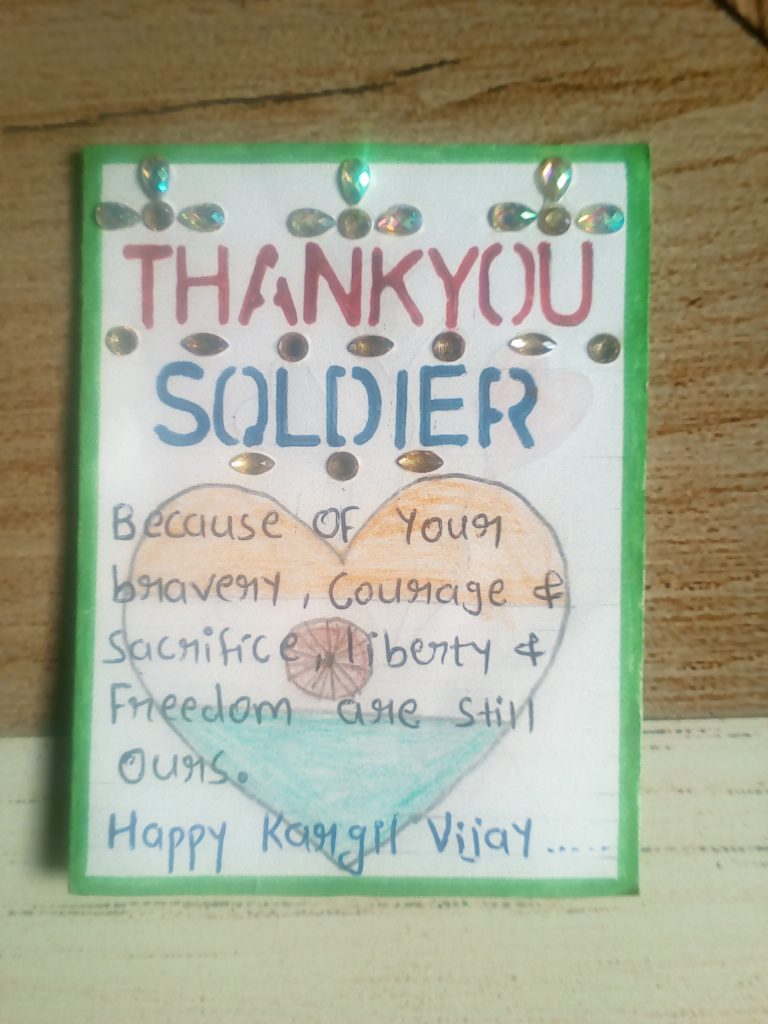 THANKYOU
SOLDIER
Because OF Your
bravery, Courage &
Sacrifice, liberty &
Freedom are still
Ours.
Happy Kargil Vijay.....